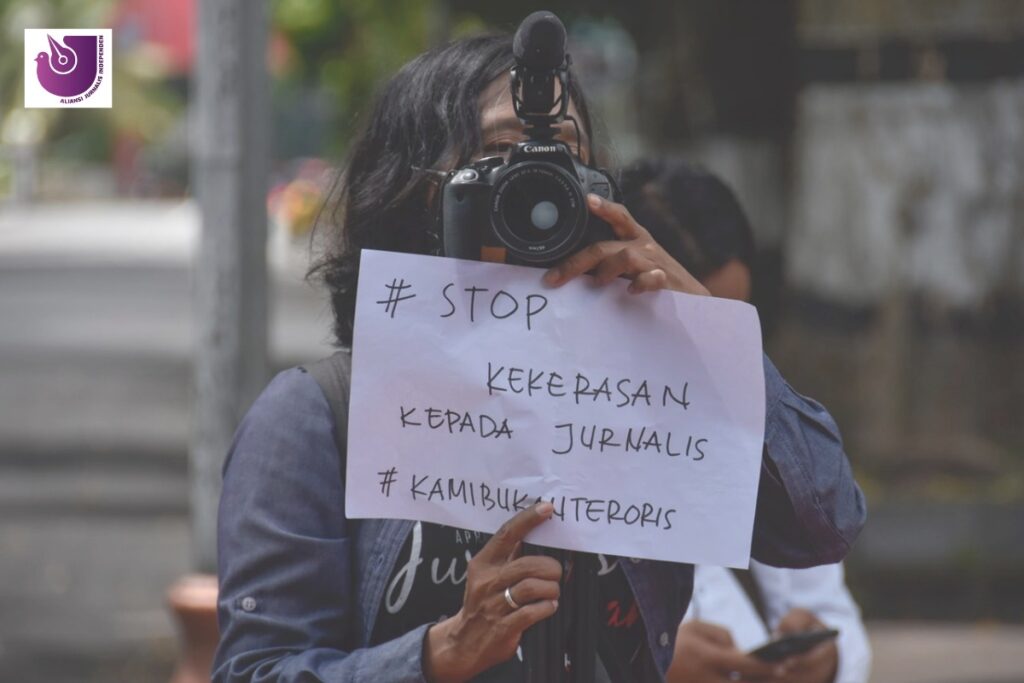 ALIANSI JURNALIS INDEPENDEN
Canon
# STOP
KEKERASAN
KEPADA JURNALIS
# KAMIBUKANTERORIS